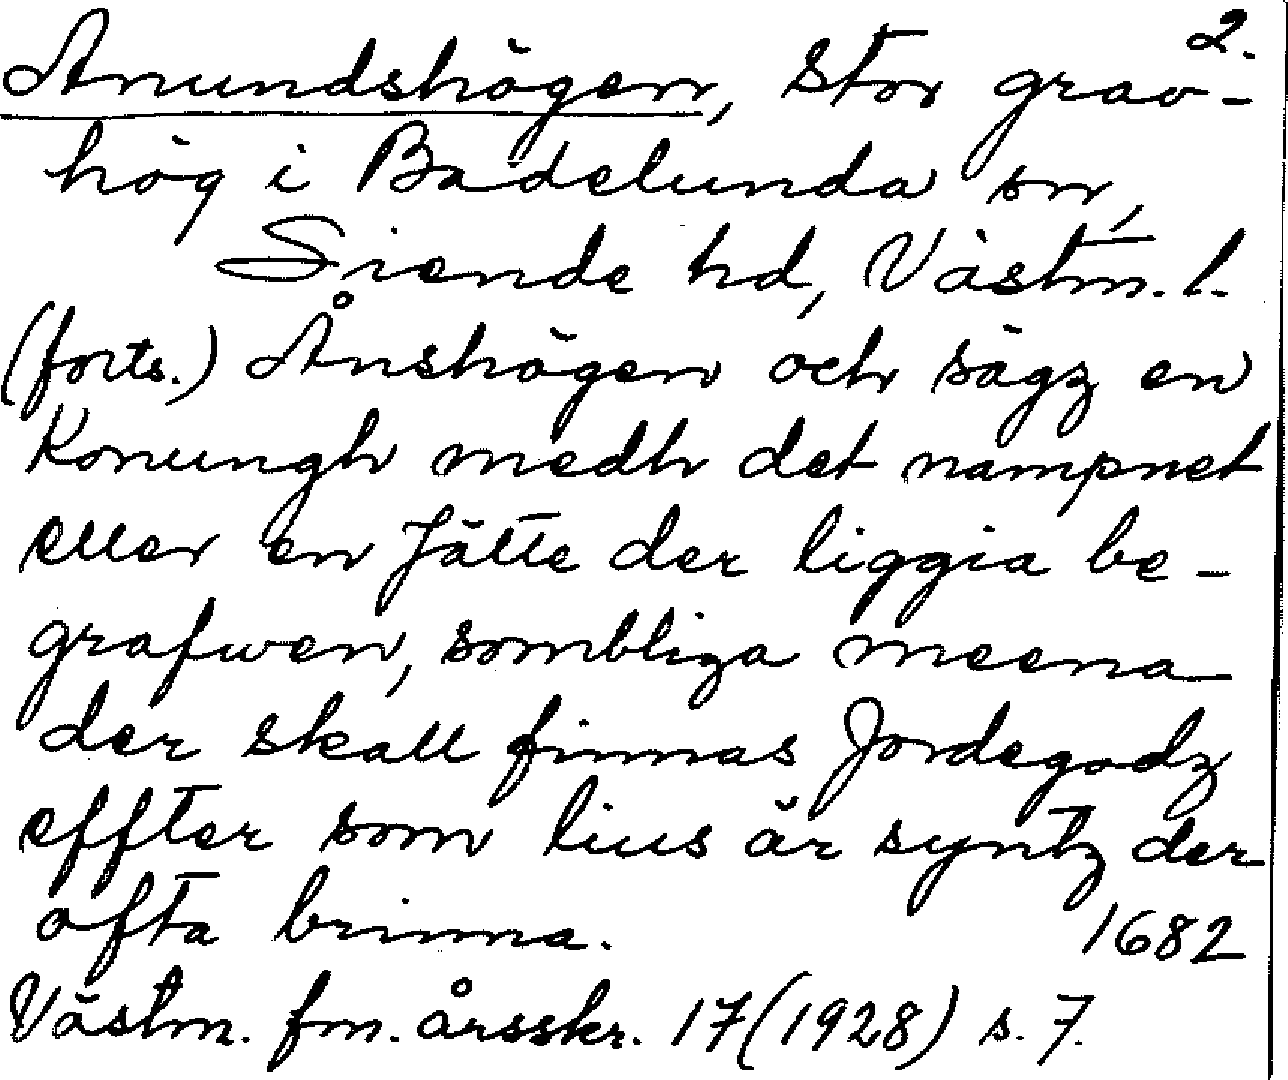 2.
Anundshögen, stor grav-
hög i Badelunda sn,
Siende hd, Västm. l.
(forts.) Ånshögen och sägz en
Konungh medh det nampnet
eller en Jätte der liggia be-
grafwen, sombliga meena
der skall finnas Jordegodz
effter som lius är syntz der
ofta brinna. 1682
Västm. fm. årsskr. 17 (1928) s. 7.